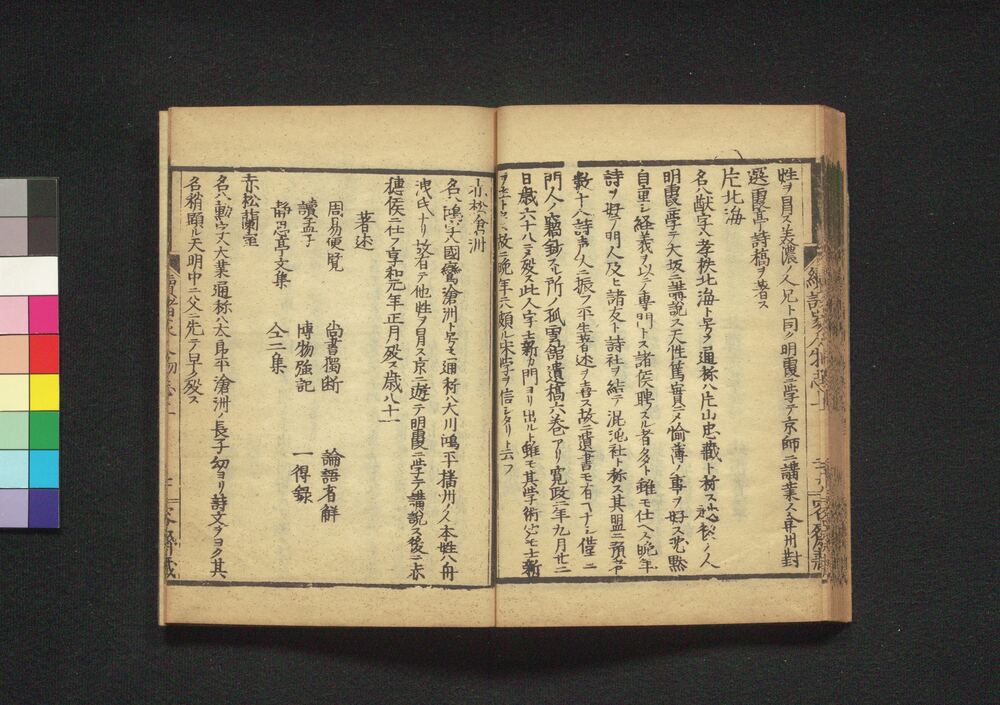 姓ヲ冒ス美濃ノ人兄ト同ク明霞ニ学テ京師ニ講業ス弇州對
選霞亭詩稿ヲ著ス
片北海
名ハ猷字ハ孝秩北海ト号ス通称ハ片山忠藏ト称ス越後ノ人
明霞ニ学テ大坂ニ講説ス天性篤實ニメ愉薄ノ事ヲ好ス沈黙
自重シ経義ヲ以テ専門トス諸侯聘スル者多ト雖モ仕ヘス晩年
詩ヲ好テ門人及ヒ諸友ト詩社ヲ結テ混沌社ト称ス其盟ニ預者
數十ハ詩声人ニ振フ平生著述ヲ喜ス故ニ遺書モ有コナシ僅ニ
門人ノ竊鈔スル所ノ孤雲館遺稿六巻アリ寛政二年九月廿二
日歳六十八ニメ殁ス此人字士新カ門ヨリ出ルト雖モ其学術必モ士新
故ニ晩年ニハ頗ル宋学ヲ信シタリト云フ
赤松滄洲
名ハ鴻字ハ國鸞滄洲ト号モ通称ハ大川鴻平播州ノ人本姓ハ舟
洩氏ナリ故有テ他姓ヲ冒ス京ニ遊テ明霞ニ学テ講説ス後ニ赤
穂侯ニ仕フ享和元年正月殁ス歳八十一
著述
周易便覧 尚書獨断 論語省解
讀孟子 博物強記 一得録
静思亭文集 仝二集
赤松蘭室
名ハ勲字ハ大業通称ハ太郎平滄洲ノ長子幼ヨリ詩文ヲヨク其
名稍顕ル天明中ニ父ニ先テ早ク殁ス